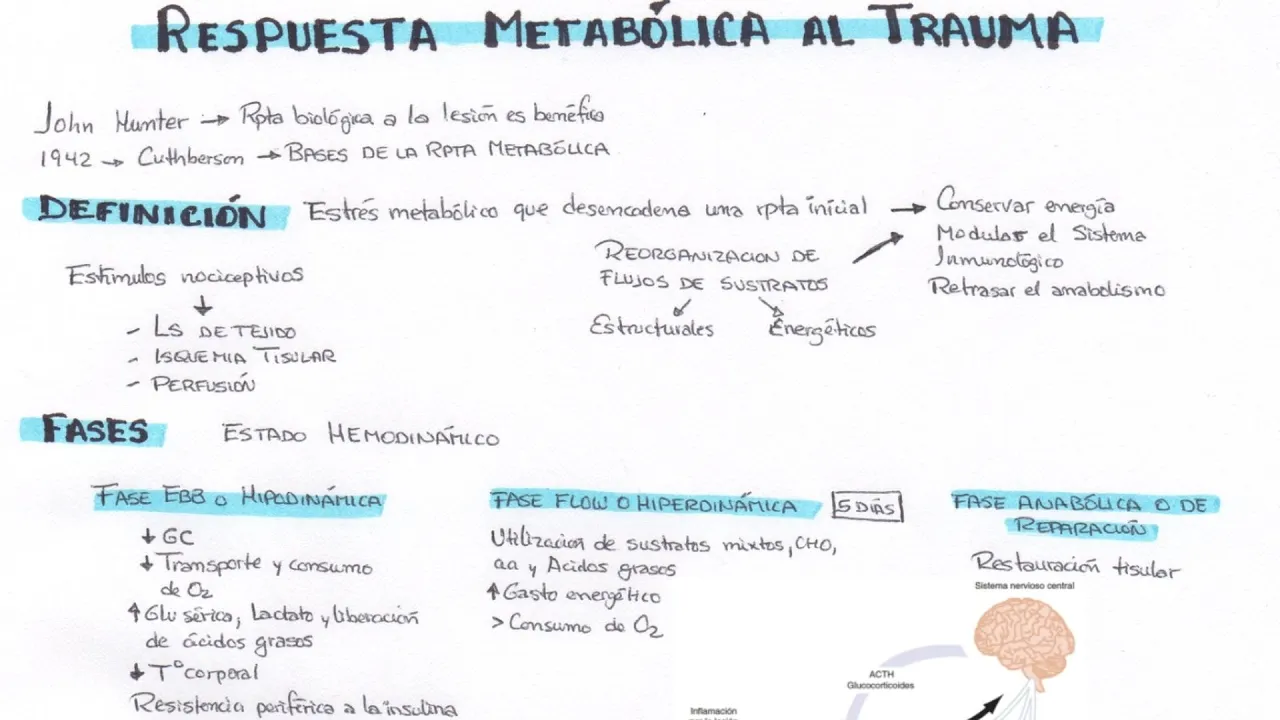 RESPUESTA METABÓLICA AL TRAUMA
John Hunter → Rpta biológica a la lesión es benéfica
1942 → Cuthberson → BASES DE LA RPTA METABÓLICA
DEFINICIÓN Estrés metabólico que desencadena una rpta inicial → Conservar energía
Modular el Sistema
Inmunológico
Retrasar el anabolismo
REORGANIZACION DE
FLUJOS DE SUSTRATOS
Estructurales Energéticos
Estímulos nociceptivos
↓
- LS DE TEJIDO
- ISQUEMIA TISULAR
- PERFUSIÓN
FASES ESTADO HEMODINÁMICO
FASE EBB O HIPODINÁMICA
↓ GC
↓ Transporte y consumo
de O2
↑ Glu sérica, Lactato y liberación
de ácidos grasos
↓ T° corporal
Resistencia periférica a la insulina
FASE FLOW O HIPERDINÁMICA 5 DÍAS
Utilización de sustratos mixtos, CHO,
aa y Acidos grasos
↑ Gasto energético
> Consumo de O2
FASE ANABÓLICA O DE
REPARACIÓN
Restauración tisular
Sistema nervioso central
ACTH
Glucocorticoides
Inflamación
por la lesión